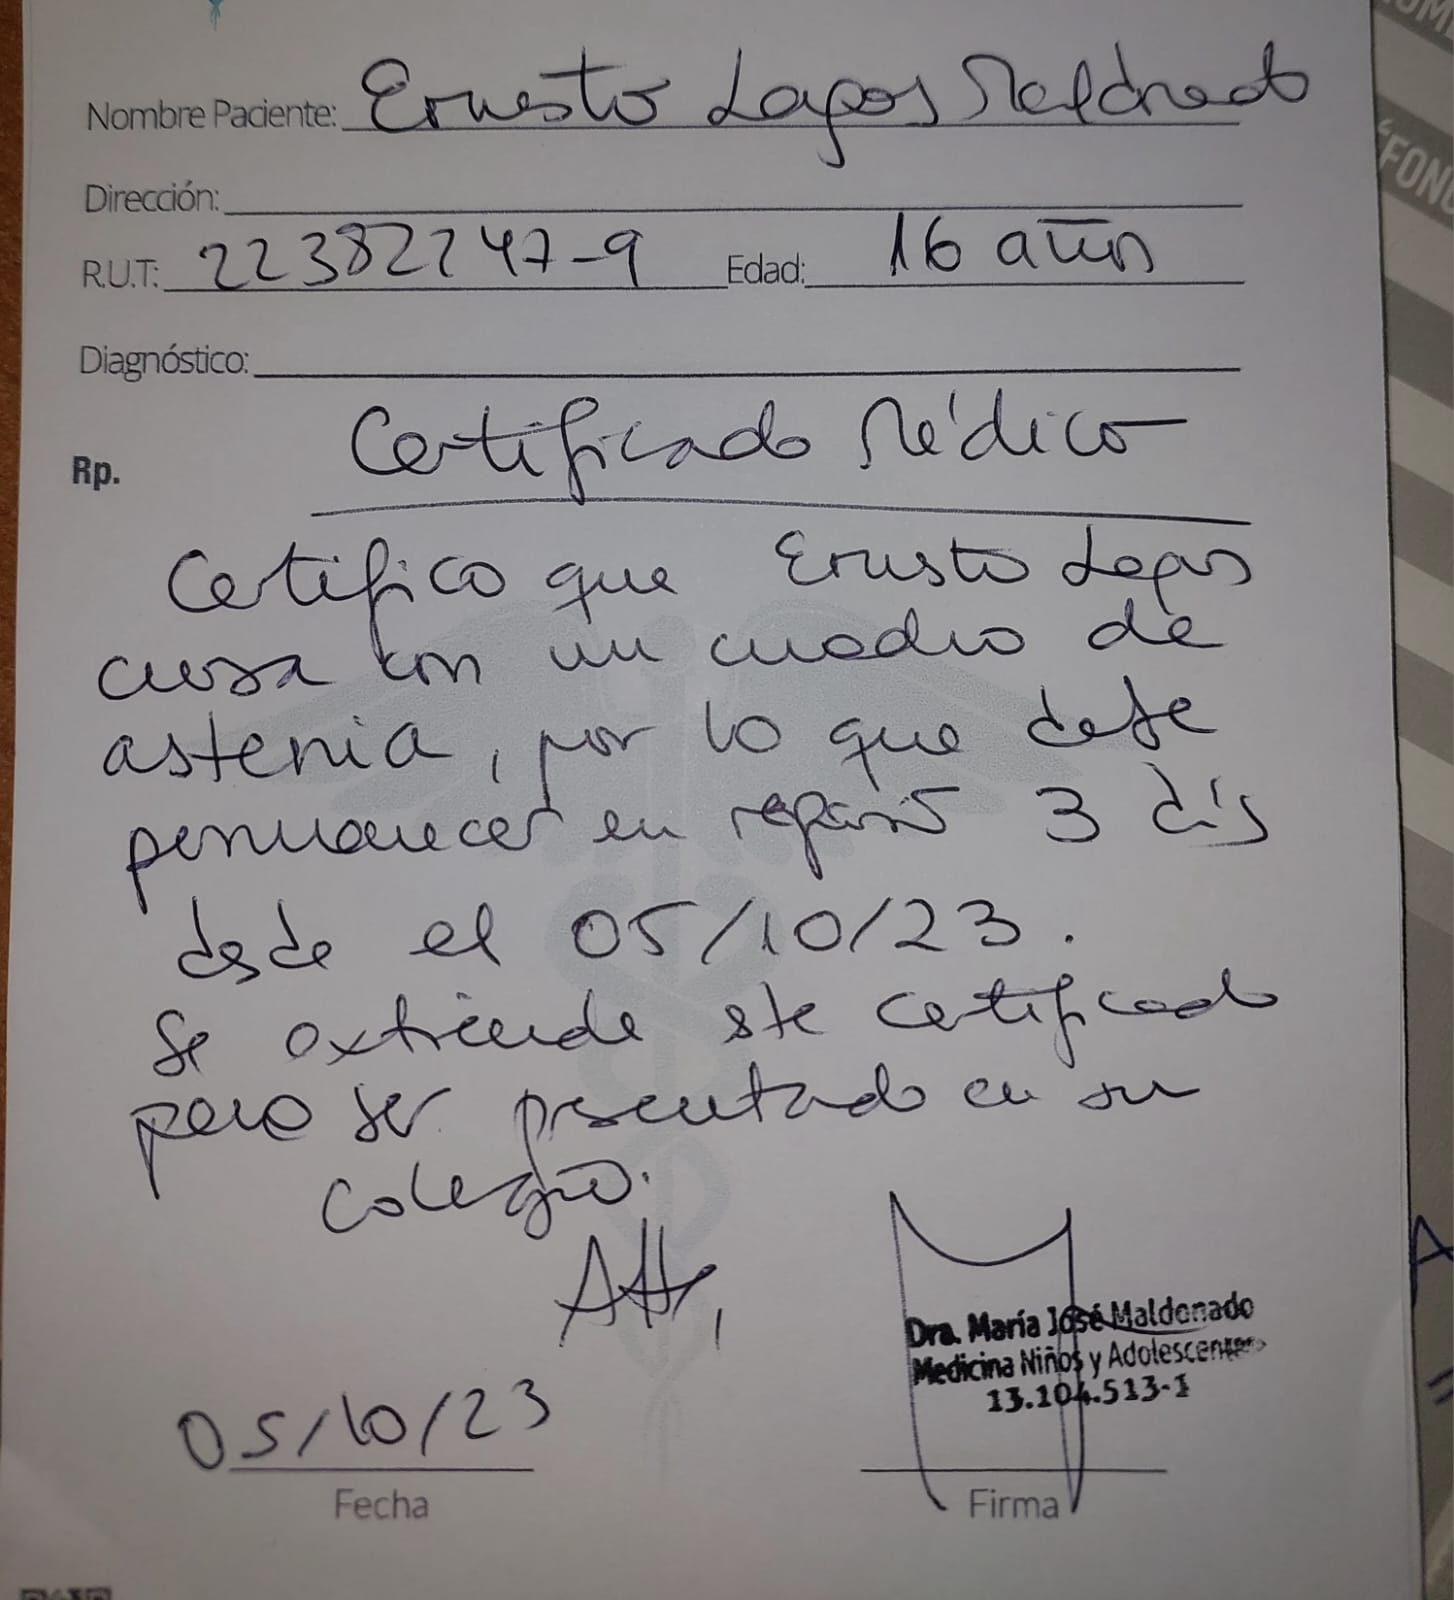 Nombre Paciente: Ernesto Lagos Maldonado
Dirección:
R.U.T: 22382747-9 Edad: 16 años
Diagnóstico:
Certificado Médico
Rp.
Certifico que Ernesto Lagos
cursa con un cuadro de
astenia, por lo que debe
permanecer en reposo 3 días
desde el 05/10/23.
Se extiende este certificado
para ser presentado en su
colegio.
Att,
Dra. María José Maldonado
Medicina Niños y Adolescentes
13.104.513-1
05/10/23
Fecha
Firma